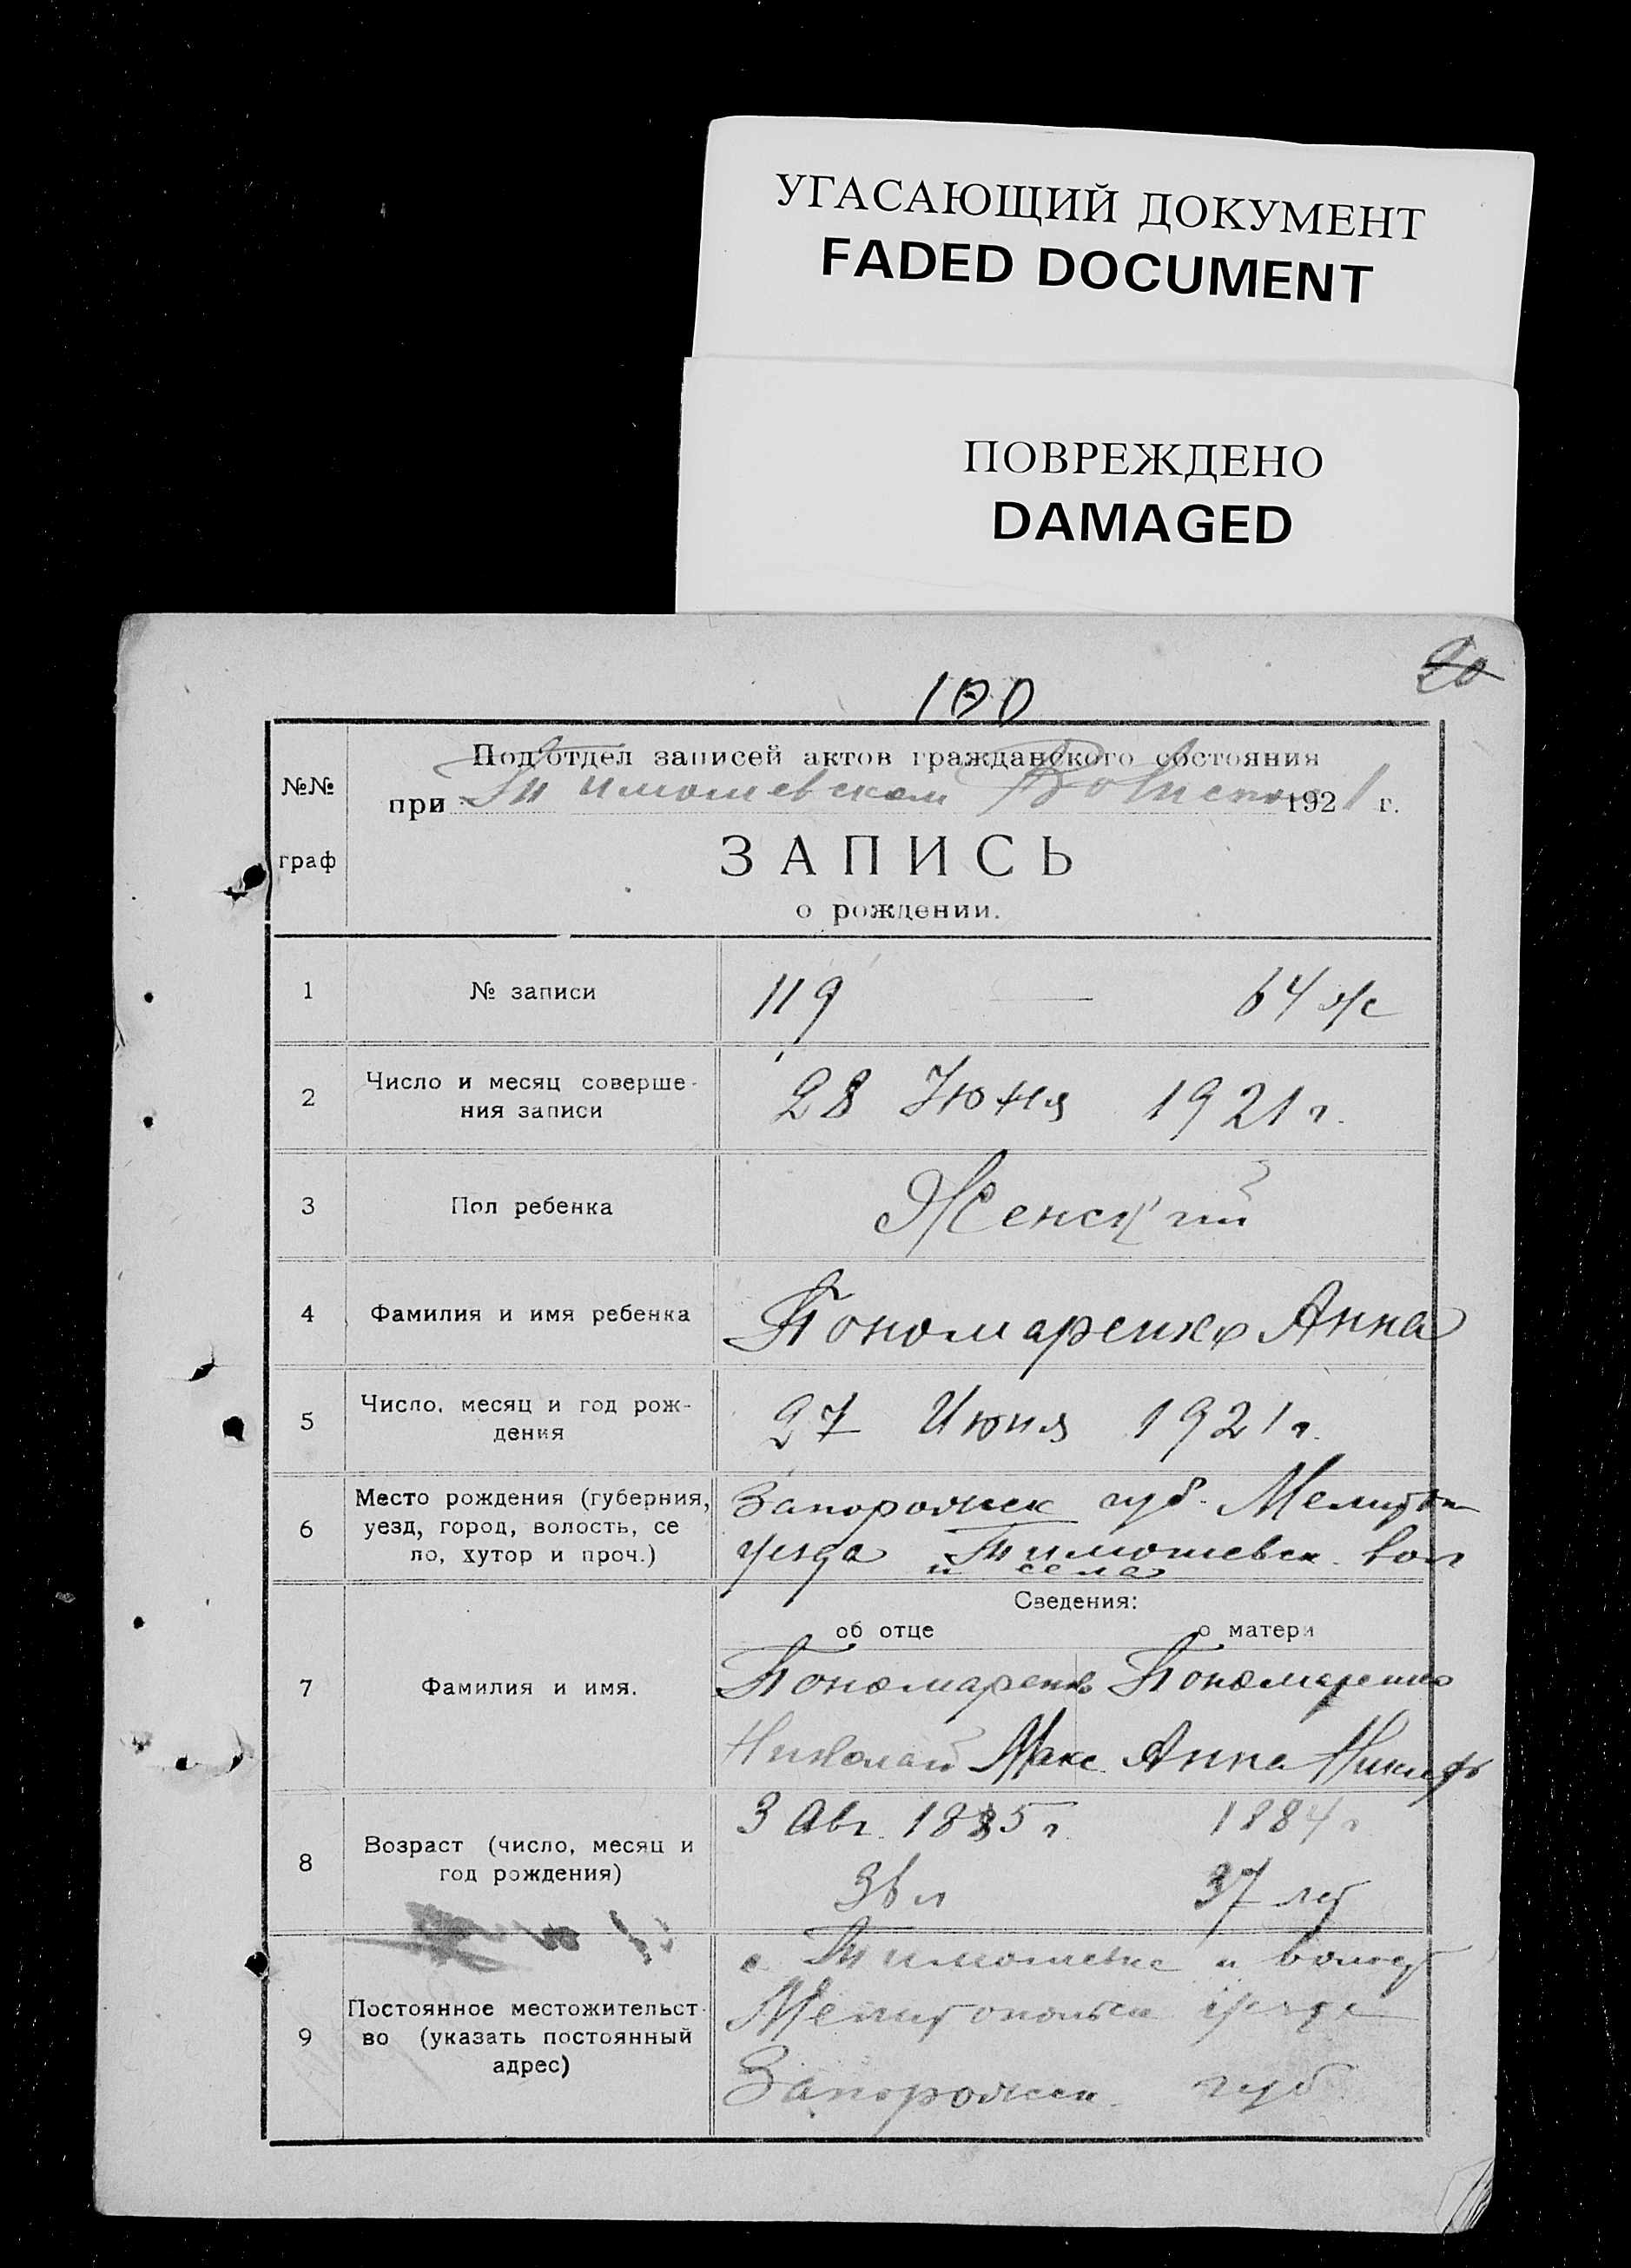 УГАСАЮЩИЙ ДОКУМЕНТ
FADED DOCUMENT
ПОВРЕЖДЕНО
DAMAGED
20
100
№№
граф
Подотдел записей актов гражданского состояния
при Тимошевском 1921 г.
ЗАПИСЬ
о рождении.
1 № записи 119 — 64 ж
2 Число и месяц соверше-
ния записи 28 Июня 1921 г.
3 Пол ребенка Женский
4 Фамилия и имя ребенка Пономаренко Анна
5 Число, месяц и год рож-
дения 27 Июня 1921 г.
6 Место рождения (губерния,
уезд, город, волость, се
ло, хутор и проч.)
Запорожск губ. Мелитоп
уезда Тимошевск. вол
и села
Сведения:
об отце о матери
7 Фамилия и имя.
Пономаренко Пономаренко
Николай Макс. Анна Никиф
8 Возраст (число, месяц и
год рождения)
3 Авг. 1885 г. 1884 г
36 л 37 лет
9 Постоянное местожительст-
во (указать постоянный
адрес)
с. Тимошевке и волост
Мелитопольск уезда
Запорожск. губ.